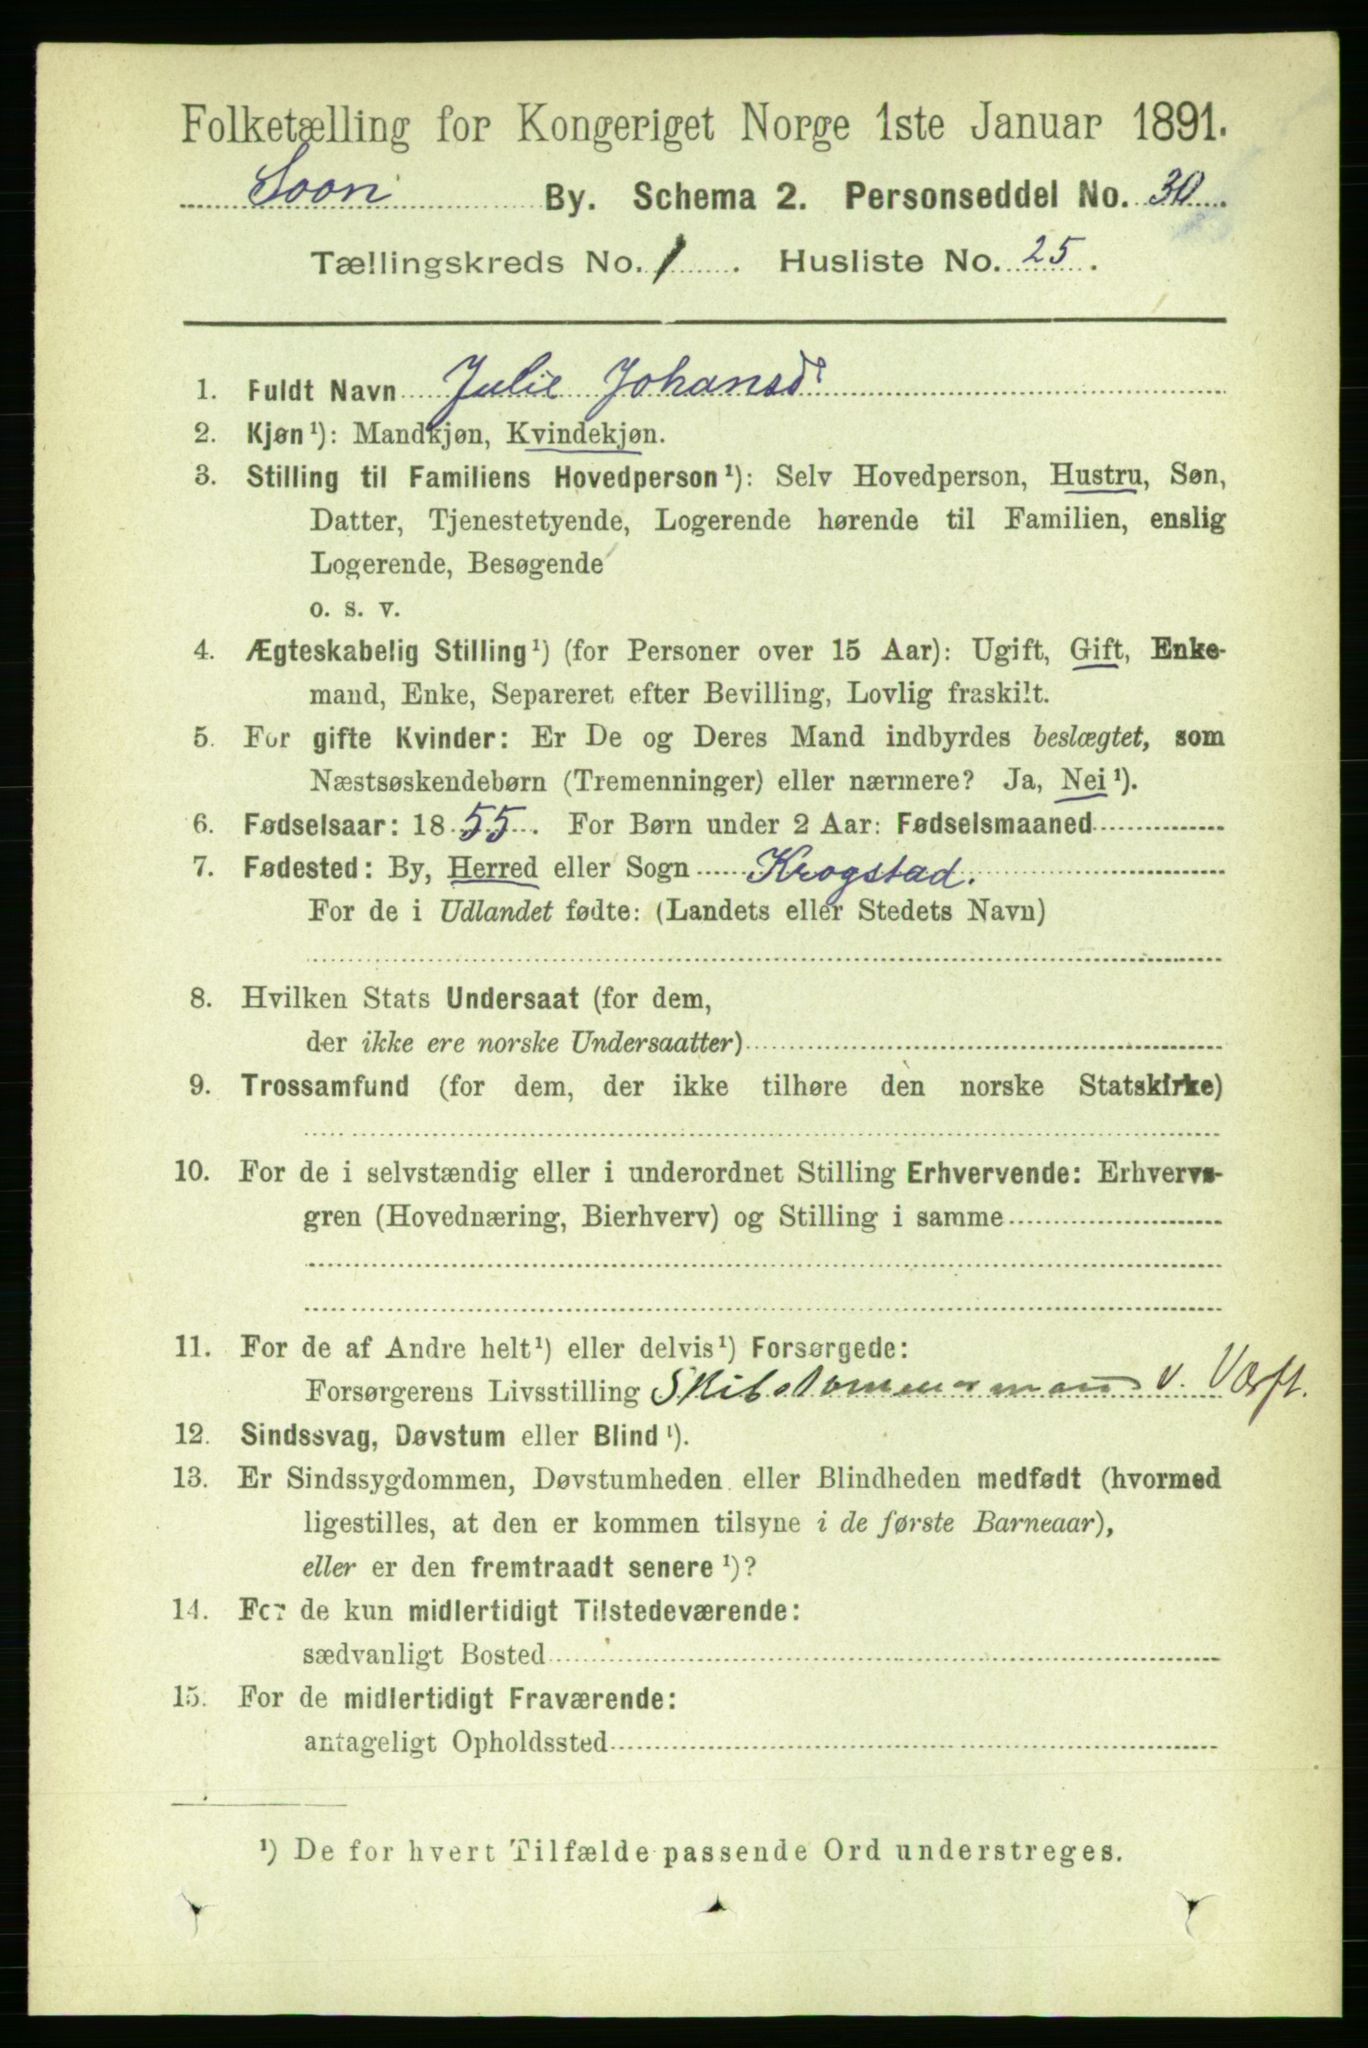 Folketælling for Kongeriget Norge 1ste Januar 1891.
Soon By. Schema 2. Personseddel No. 30.
Tællingskreds No. 1. Husliste No. 25.
1. Fuldt Navn Julie Johansdr
2. Kjøn¹): Mandkjøn, Kvindekjøn.
3. Stilling til Familiens Hovedperson¹): Selv Hovedperson, Hustru, Søn,
Datter, Tjenestetyende, Logerende hørende til Familien, enslig
Logerende, Besøgende
o. s. v.
4. Ægteskabelig Stilling¹) (for Personer over 15 Aar): Ugift, Gift, Enke-
mand, Enke, Separeret efter Bevilling, Lovlig fraskilt.
5. For gifte Kvinder: Er De og Deres Mand indbyrdes beslægtet, som
Næstsøskendebørn (Tremenninger) eller nærmere? Ja, Nei¹).
6. Fødselsaar: 1855. For Børn under 2 Aar: Fødselsmaaned
7. Fødested: By, Herred eller Sogn Krogstad.
For de i Udlandet fødte: (Landets eller Stedets Navn)
8. Hvilken Stats Undersaat (for dem,
der ikke ere norske Undersaatter)
9. Trossamfund (for dem, der ikke tilhøre den norske Statskirke)
10. For de i selvstændig eller i underordnet Stilling Erhvervende: Erhvervs-
gren (Hovednæring, Bierhverv) og Stilling i samme
11. For de af Andre helt¹) eller delvis¹) Forsørgede:
Forsørgerens Livsstilling Skibstømmermand v. Værft.
12. Sindssvag, Døvstum eller Blind¹).
13. Er Sindssygdommen, Døvstumheden eller Blindheden medfødt (hvormed
ligestilles, at den er kommen tilsyne i de første Barneaar),
eller er den fremtraadt senere¹)?
14. For de kun midlertidigt Tilstedeværende:
sædvanligt Bosted
15. For de midlertidigt Fraværende:
antageligt Opholdssted
¹) De for hvert Tilfælde passende Ord understreges.